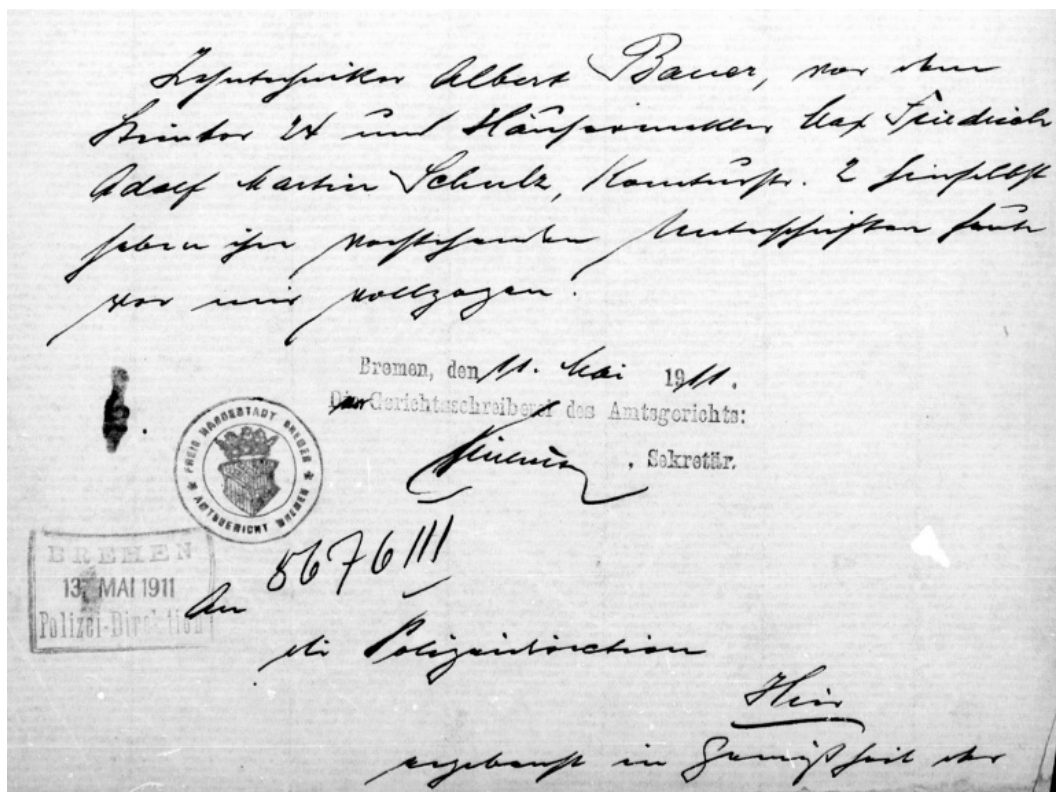 Zahntechniker Albert Bauer, vor dem
Steintor 24 und Häusermakler Max Friedrich
Adolf Martin Schulz, Komturstr. 2 hieselbst
haben ihre vorstehenden Unterschriften heute
vor mir vollzogen.
Bremen, den 11. Mai 1911.
Gerichtsschreiberei des Amtsgerichts:
, Sekretär.
FREIE HANSESTADT BREMEN
AMTSGERICHT BREMEN
BREMEN
13. MAI 1911
Polizei-Direktion
5676 III
An
die Polizeidirection
Hier
ergebenst in Gemäßheit der